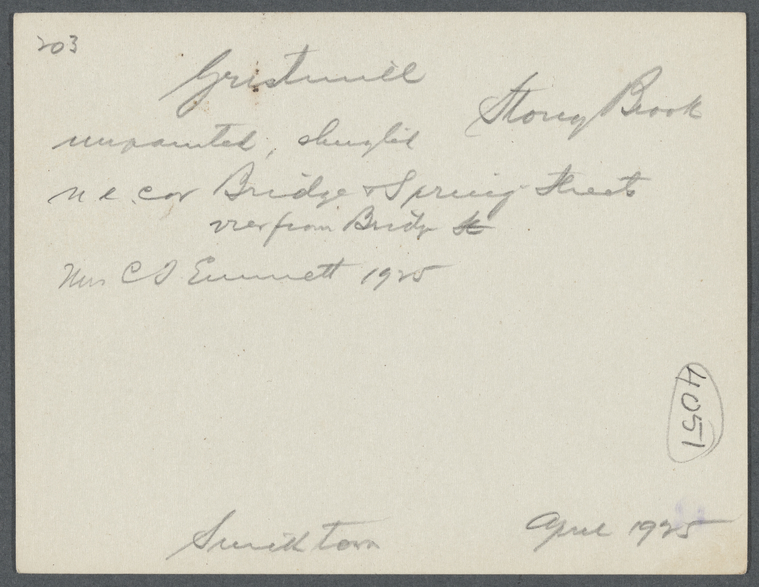 203
Gristmill
Stony Brook
unpainted, shingled
n e. cor Bridge & Spring Streets
view from Bridge St
Mrs C D Emmett 1925
4051
Smithtown
April 1925